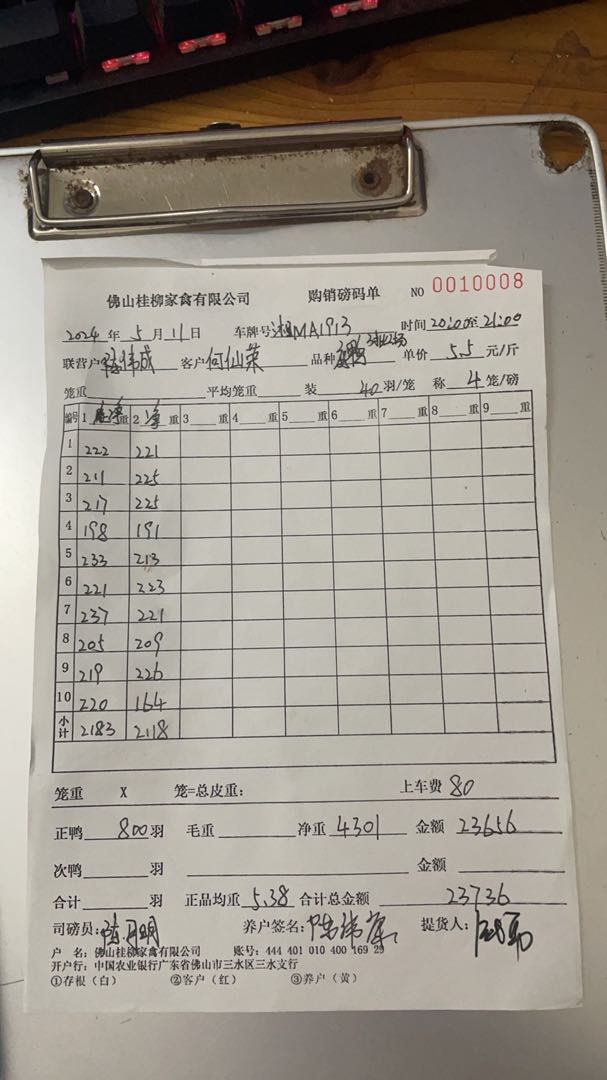 佛山桂柳家禽有限公司 购销磅码单 NO 0010008
2024 年 5 月 11 日 车牌号 湘MA1913 时间 20:00至21:00
联营户 陈伟成 客户 何仙荣 品种 单价 5.5 元/斤
笼重 平均笼重 装 40 羽/笼 称 4 笼/磅
编号 1 净重 2 净重 3 重 4 重 5 重 6 重 7 重 8 重 9 重
1 222 221
2 211 225
3 217 225
4 198 191
5 233 213
6 221 223
7 237 221
8 205 209
9 219 226
10 220 164
小计 2183 2118
笼重 X 笼=总皮重: 上车费 80
正鸭 800 羽 毛重 净重 4301 金额 23656
次鸭 羽 金额
合计 羽 正品均重 5.38 合计总金额 23736
司磅员: 养户签名: 提货人:
户 名: 佛山桂柳家禽有限公司 账号: 444 401 010 400 169 29
开户行: 中国农业银行广东省佛山市三水区三水支行
①存根(白) ②客户(红) ③养户(黄)